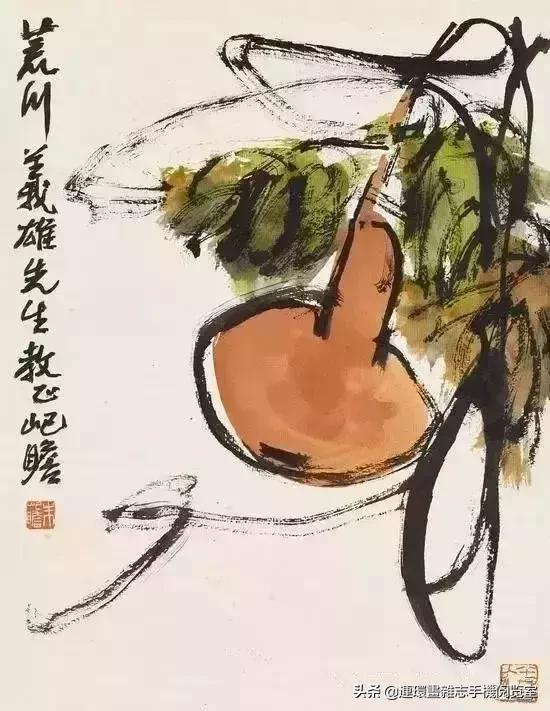 荒川義雄先生教正屺瞻
头条 @連環畫雜志手機阅览室